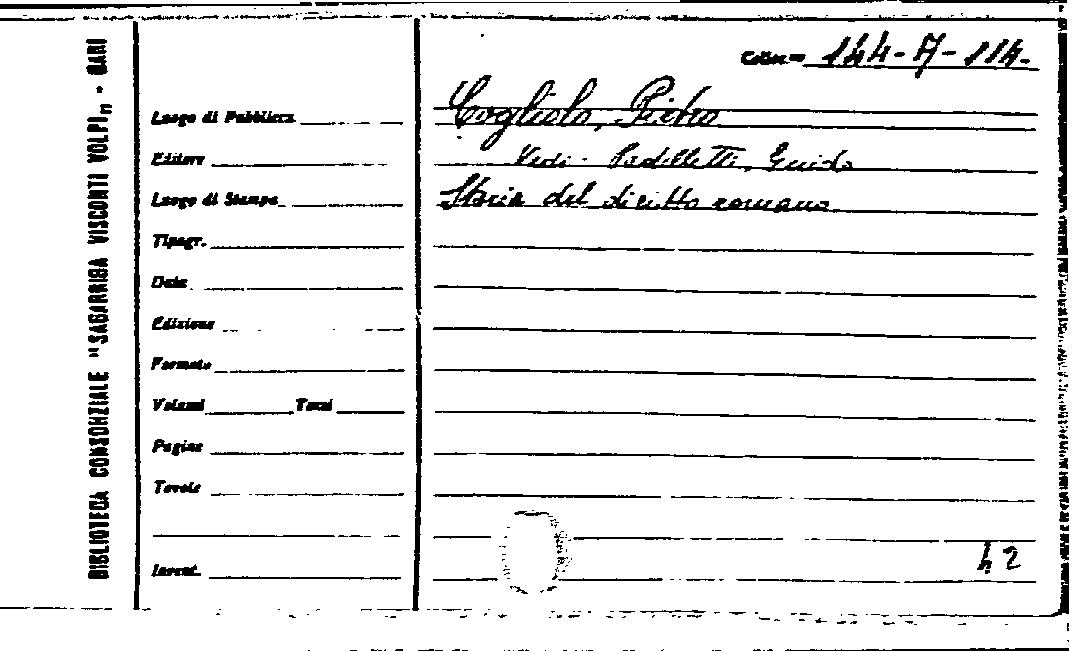 BIBLIOTECA CONSORZIALE "SAGARRIGA VISCONTI VOLPI„ - BARI
Colloc.ne 144-A-114.
Luogo di Pubblicaz.
Editore
Luogo di Stampa
Tipogr.
Data
Edizione
Formato
Volumi Tomi
Pagine
Tavole
Invent.
Cogliolo, Pietro
Vedi - Padelletti, Guido
Storia del diritto romano
h2